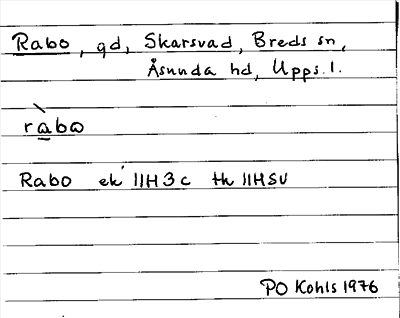 Rabo, gd, Skarsvad, Breds sn,
Åsunda hd, Upps. l.
ràbω
Rabo ek 11H3c th 11HSV
PO Kohls 1976